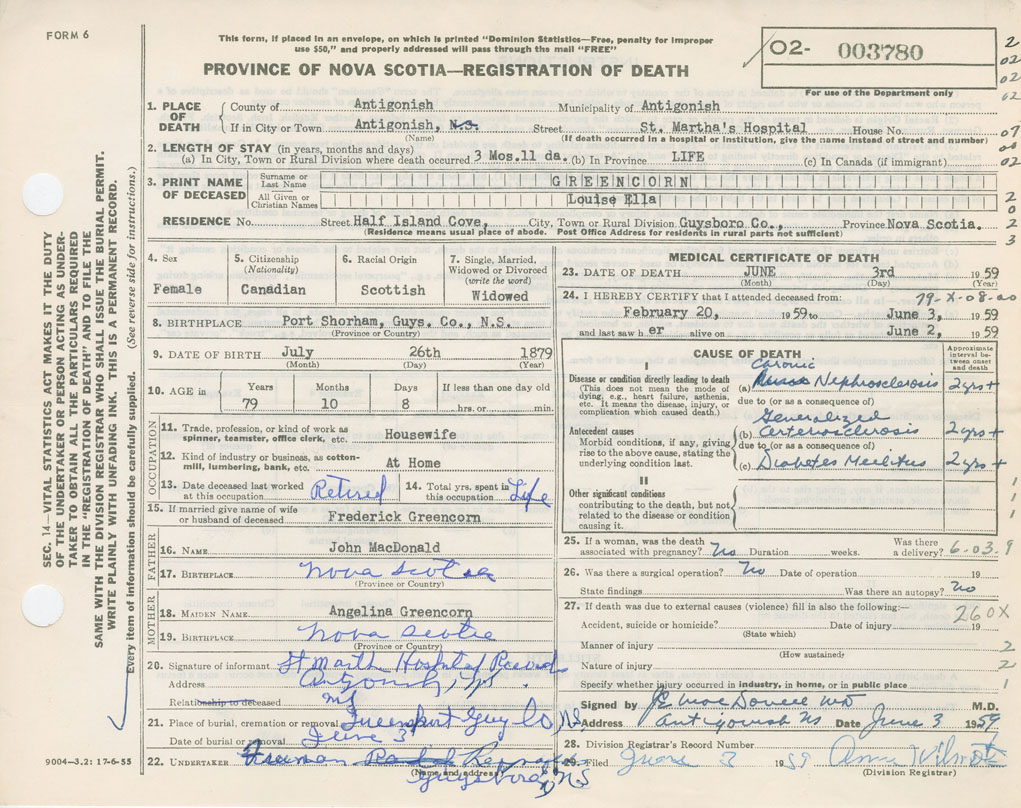 FORM 6
This form, if placed in an envelope, on which is printed "Dominion Statistics—Free, penalty for improper
use $50," and properly addressed will pass through the mail "FREE"
PROVINCE OF NOVA SCOTIA—REGISTRATION OF DEATH
02- 003780
For use of the Department only
1. PLACE OF DEATH
County of Antigonish Municipality of Antigonish
If in City or Town Antigonish, N.S. Street St. Martha's Hospital House No.
(Name) (If death occurred in a hospital or institution, give the name instead of street and number)
2. LENGTH OF STAY (in years, months and days)
(a) In City, Town or Rural Division where death occurred 3 Mos.11 da. (b) In Province LIFE (c) In Canada (if immigrant)
3. PRINT NAME OF DECEASED
Surname or Last Name GREENCORN
All Given or Christian Names Louise Ella
RESIDENCE No. Street Half Island Cove, City, Town or Rural Division Guysboro Co., Province Nova Scotia.
(Residence means usual place of abode. Post Office Address for residents in rural parts not sufficient)
4. Sex Female
5. Citizenship (Nationality) Canadian
6. Racial Origin Scottish
7. Single, Married, Widowed or Divorced (write the word) Widowed
8. BIRTHPLACE Port Shorham, Guys. Co., N.S.
(Province or Country)
9. DATE OF BIRTH July 26th 1879
(Month) (Day) (Year)
10. AGE in Years 79 Months 10 Days 8 If less than one day old hrs. or min.
OCCUPATION
11. Trade, profession, or kind of work as spinner, teamster, office clerk, etc. Housewife
12. Kind of industry or business, as cotton-mill, lumbering, bank, etc. At Home
13. Date deceased last worked at this occupation Retired
14. Total yrs. spent in this occupation Life
15. If married give name of wife or husband of deceased Frederick Greencorn
FATHER
16. NAME John MacDonald
17. BIRTHPLACE Nova Scotia
(Province or Country)
MOTHER
18. MAIDEN NAME Angelina Greencorn
19. BIRTHPLACE Nova Scotia
(Province or Country)
20. Signature of informant St Marth Hospital Record
Address Antigonish, NS.
Relationship to deceased
21. Place of burial, cremation or removal Queensport Guy Co NS
Date of burial or removal June 3
22. UNDERTAKER Freeman
(Name and address)
Guysboro, NS
MEDICAL CERTIFICATE OF DEATH
23. DATE OF DEATH JUNE 3rd 1959
(Month) (Day) (Year)
24. I HEREBY CERTIFY that I attended deceased from: 79-X-08-00
February 20, 1959 to June 3, 1959
and last saw h er alive on June 2, 1959
CAUSE OF DEATH
Approximate interval between onset and death
I
Disease or condition directly leading to death
(This does not mean the mode of dying, e.g., heart failure, asthenia, etc. It means the disease, injury, or complication which caused death.)
(a) Chronic Nephrosclerosis 2 yrs +
due to (or as a consequence of)
Antecedent causes
Morbid conditions, if any, giving rise to the above cause, stating the underlying condition last.
(b) Generalized arteriosclerosis 2 yrs +
due to (or as a consequence of)
(c) Diabetes Mellitus 2 yrs +
II
Other significant conditions
contributing to the death, but not related to the disease or condition causing it.
25. If a woman, was the death associated with pregnancy? No Duration weeks. Was there a delivery? 6-03.9
26. Was there a surgical operation? No Date of operation 19
State findings Was there an autopsy? No
27. If death was due to external causes (violence) fill in also the following:— 260X
Accident, suicide or homicide? Date of injury 19
(State which)
Manner of injury
(How sustained)
Nature of injury
Specify whether injury occurred in industry, in home, or in public place
Signed by M.D.
Address Antigonish NS Date June 3 1959
28. Division Registrar's Record Number
29. Filed June 3 1959
(Division Registrar)
9004—3.2: 17-6-55
SEC. 14—VITAL STATISTICS ACT MAKES IT THE DUTY
OF THE UNDERTAKER OR PERSON ACTING AS UNDER-
TAKER TO OBTAIN ALL THE PARTICULARS REQUIRED
IN THE "REGISTRATION OF DEATH" AND TO FILE THE
SAME WITH THE DIVISION REGISTRAR WHO SHALL ISSUE THE BURIAL PERMIT.
WRITE PLAINLY WITH UNFADING INK. THIS IS A PERMANENT RECORD.
Every item of information should be carefully supplied. (See reverse side for instructions.)
2
02
02
02
07
00
02
2
0
2
3
1
1
1
2
2
1